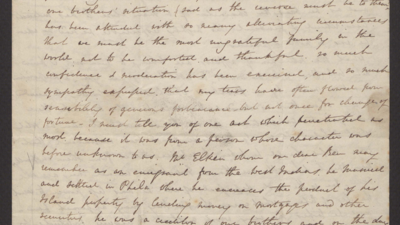 our brothers situation / sad as the reverse must be to them
has been attended with so many alleviating circumstances
that we must be the most ungrateful family in the
world not to be comforted and thankful, so much
confidence & moderation has been exercised and so much
sympathy expressed that my tears have often flowed from
sensibility of generous but not once for change of
fortune – I must tell you of one act which penetrated us
most because it was from a person whose character was
before unknown to us. Mr whom our dear Ben may
remember as an emigrant from the West Indies he married
and settled in Phila where he encreases the product of his
Island property by lending money on mortgages and other
securities, he was a creditor of our brothers and on the day